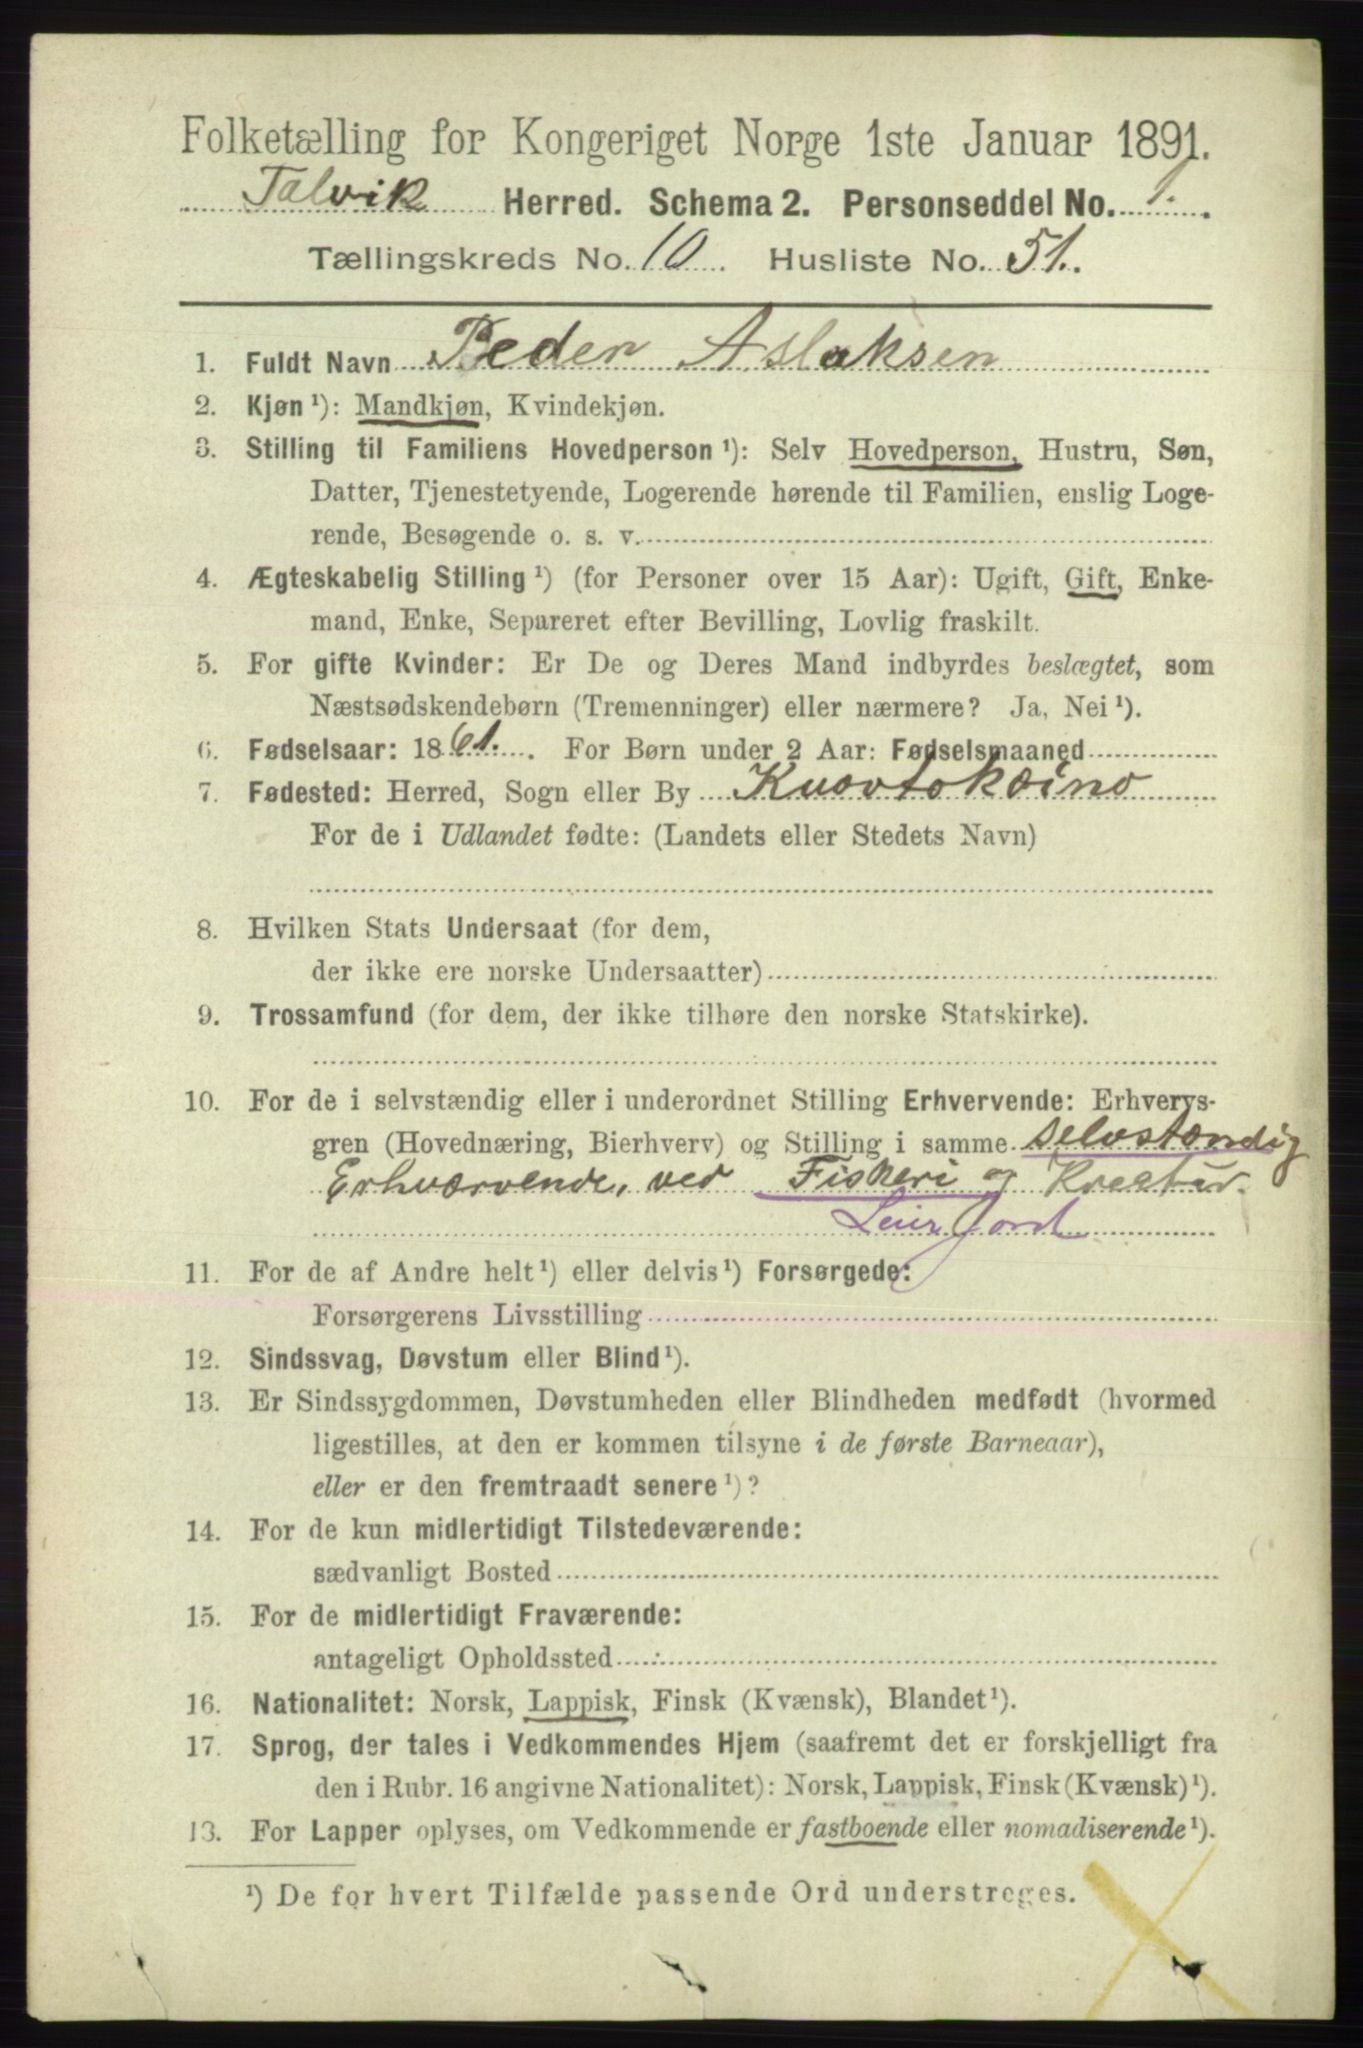 Folketælling for Kongeriget Norge 1ste Januar 1891.
Talvik Herred. Schema 2. Personseddel No. 1.
Tællingskreds No. 10 Husliste No. 51.
1. Fuldt Navn Peder Aslaksen
2. Kjøn ¹): Mandkjøn, Kvindekjøn.
3. Stilling til Familiens Hovedperson ¹): Selv Hovedperson, Hustru, Søn,
Datter, Tjenestetyende, Logerende hørende til Familien, enslig Loge-
rende, Besøgende o. s. v.
4. Ægteskabelig Stilling ¹) (for Personer over 15 Aar): Ugift, Gift, Enke-
mand, Enke, Separeret efter Bevilling, Lovlig fraskilt.
5. For gifte Kvinder: Er De og Deres Mand indbyrdes beslægtet, som
Næstsødskendebørn (Tremenninger) eller nærmere? Ja, Nei ¹).
6. Fødselsaar: 1861. For Børn under 2 Aar: Fødselsmaaned
7. Fødested: Herred, Sogn eller By Kuovtokæino
For de i Udlandet fødte: (Landets eller Stedets Navn)
8. Hvilken Stats Undersaat (for dem,
der ikke ere norske Undersaatter)
9. Trossamfund (for dem, der ikke tilhøre den norske Statskirke).
10. For de i selvstændig eller i underordnet Stilling Erhvervende: Erhvervs-
gren (Hovednæring, Bierhverv) og Stilling i samme selvstændig
Erhværvende, ved Fiskeri og Kreatur.
Leier Jord
11. For de af Andre helt ¹) eller delvis ¹) Forsørgede:
Forsørgerens Livsstilling
12. Sindssvag, Døvstum eller Blind ¹).
13. Er Sindssygdommen, Døvstumheden eller Blindheden medfødt (hvormed
ligestilles, at den er kommen tilsyne i de første Barneaar),
eller er den fremtraadt senere ¹)?
14. For de kun midlertidigt Tilstedeværende:
sædvanligt Bosted
15. For de midlertidigt Fraværende:
antageligt Opholdssted
16. Nationalitet: Norsk, Lappisk, Finsk (Kvænsk), Blandet ¹).
17. Sprog, der tales i Vedkommendes Hjem (saafremt det er forskjelligt fra
den i Rubr. 16 angivne Nationalitet): Norsk, Lappisk, Finsk (Kvænsk) ¹).
13. For Lapper oplyses, om Vedkommende er fastboende eller nomadiserende ¹).
¹) De for hvert Tilfælde passende Ord understreges.